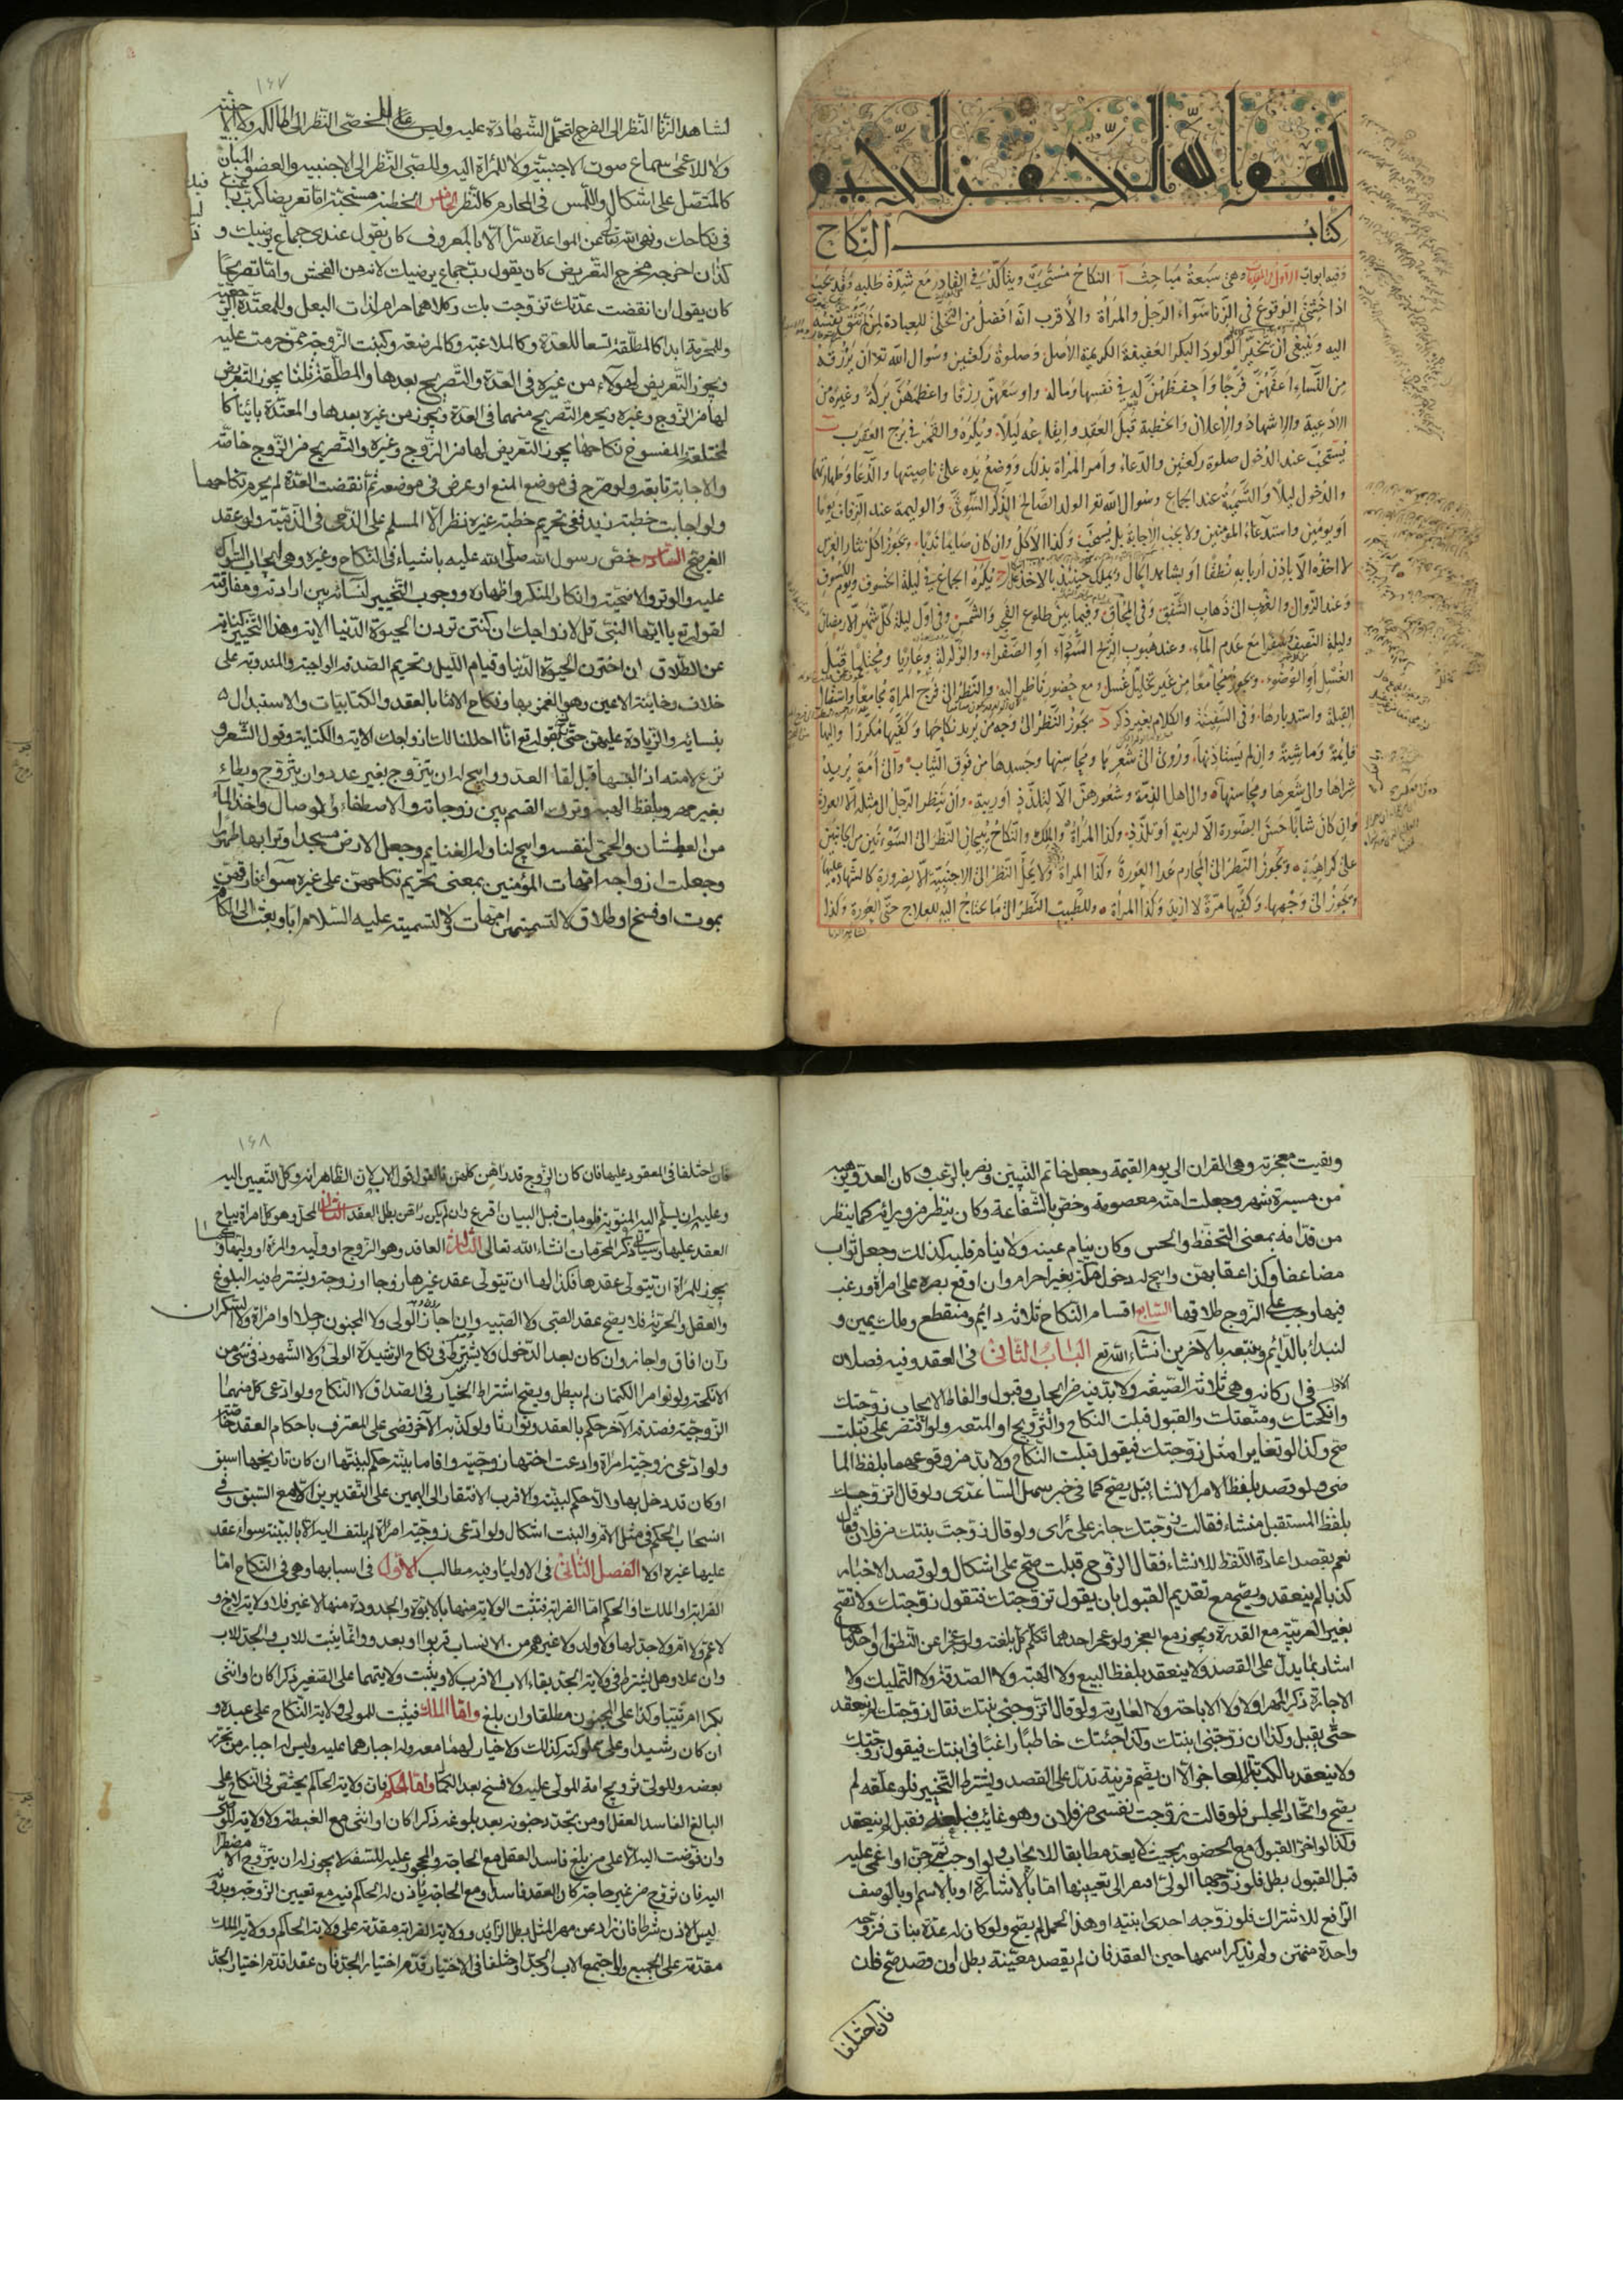 بسم الله الرحمن الرحيم
كتاب النكاح
وفيه ابواب الاول وهي سبعة مباحث آ النكاح مستحب ويتاكد في القادر مع شدة طلبه وقد يجب
اذا خشي الوقوع في الزنا سواء الرجل والمراة والاقرب انه افضل من التخلي للعبادة لمن لم تتق نفسه
اليه وينبغي ان يتخير الولود البكر العفيفة الكريمة الاصل وصلوة ركعتين وسؤال الله تعالى ان يرزقه
من النساء اعفهن فرجا واحفظهن له في نفسها وماله واوسعهن رزقا واعظمهن بركة وغيره من
الادعية والاشهاد والاعلان والخطبة قبل العقد وايقاعه ليلا ويكره والقمر في برج العقرب ب
يستحب عند الدخول صلوة ركعتين والدعاء وامر المراة بذلك ووضع يده على ناصيتها والدعا وطهارتهما
والدخول ليلا والتسمية عند الجماع وسؤال الله تعالى الولد الصالح الذكر السوي والوليمة عند الزفاف يوما
او يومين واستدعاء المؤمنين ولا يجب الاجابة بل يستحب وكذا الاكل وان كان صايما ندبا ويجوز اكل نثار العرس
لا اخذه الا باذن اربابه نطقا او بشاهد الحال ويملك حينئذ بالاخذ ج يكره الجماع في ليلة الخسوف ويوم الكسوف
وعند الزوال والغرب الى ذهاب الشفق وفي المحاق وفيما بين طلوع الفجر والشمس وفي اول ليلة كل شهر الا رمضان
وليلة النصف وسفرا مع عدم الماء وعند هبوب الريح السوداء او الصفراء والزلزلة وعاريا ومحتلما قبل
الغسل او الوضوء ويجوز مجامعا من غير تخلل غسل ومع حضور ناظر اليه والنظر الى فرج المراة مجامعا واستقبال
القبلة واستدبارها وفي السفينة والكلام بغير ذكر د يجوز النظر الى وجه من يريد نكاحها وكفيها مكررا واليها
قايمة وماشية وان لم يستاذنها وروي الى شعرها ومحاسنها وجسدها من فوق الثياب والى امة يريد
شراها والى شعرها ومحاسنها والى اهل الذمة وشعورهن الا لتلذذ او ريبة وان ينظر الرجل الى مثله الا العورة
وان كان شابا حسن الصورة الا لريبة او تلذذ وكذا المراة والملك والنكاح يبيحان النظر الى السوءتين من الجانبين
على كراهية ويجوز النظر الى المحارم عدا العورة وكذا المراة ولا يحل النظر الى الاجنبية الا لضرورة كالشهادة عليها
ويجوز الى وجهها وكفيها مرة لا ازيد وكذا المراة وللطبيب النظر الى ما يحتاج اليه للعلاج حتى العورة وكذا
لشاهد الزنا
١٤٧
لشاهد الزنا النظر الى الفرج لتحمل الشهادة عليه وليس للخصي النظر الى المالكة ولا الاجنبية
ولا للاعمى سماع صوت الاجنبية ولا للمراة اليه وللصبي النظر الى الاجنبيه والعضو المبان
كالمتصل على اشكال واللمس في المحارم كالنظر الخامس الخطبة مستحبة اما تعريضا كرب راغب
في نكاحك ونهى الله تعالى عن المواعدة سرا الا بالمعروف كان يقول عندي جماع يرضيك و
كذا ان اخرجه مخرج التعريض كان يقول رب جماع يرضيك لانه من الفحش واما تصريحا
كان يقول ان انقضت عدتك تزوجت بك وكلاهما حرام لذات البعل وللمعتدة الرجعية
وللمحرمة ابدا كالمطلقة تسعا للعدة وكالملاعنة وكالمرضعة وكبنت الزوجة ممن حرمت عليه
ويجوز التعريض لهولاء من غيره في العدة والتصريح بعدها والمطلقة ثلثا يجوز التعريض
لها من الزوج وغيره ويحرم التصريح منهما في العدة ويجوز من غيره بعدها والمعتدة بائنا كا
لمختلعة والمفسوخ نكاحها يجوز التعريض لها من الزوج وغيره والتصريح من الزوج خاصة
والاجابة تابعة ولو صرح في موضع المنع او عرض في موضعه ثم انقضت العدة لم يحرم نكاحها
ولو اجابت خطبة زيد ففي تحريم خطبة غيره نظر الا المسلم على الذمي في الذمية ولو عقد
الغير صح السادس خص رسول الله صلى الله عليه باشياء في النكاح وغيره وهي ايجاب السواك
عليه والوتر والاضحية وانكار المنكر واظهاره ووجوب التخيير لنسائه بين ارادته ومفارقته
لقوله تع يا ايها النبي قل لازواجك ان كنتن تردن الحيوة الدنيا الاية وهذا التخيير كناية
عن الطلاق ان اخترن الحيوة الدنيا وقيام الليل وتحريم الصدقة الواجبة والمندوبة على
خلاف وخاينة الاعين وهو الغمز بها ونكاح الاماء بالعقد والكتابيات والاستبدال
بنسايه والزيادة عليهن حتى نسخ بقوله تع انا احللنا لك ازواجك الاية والكتابة وقول الشعر و
نزع لامته اذا لبسها قبل لقاء العدو وابيح له ان يتزوج بغير عدد وان يتزوج ويطاء
بغير مهر وبلفظ الهبة وترك القسم بين زوجاته والاصطفاء والوصال واخذ الماء
من العطشان والحمى لنفسه وابيح لنا وله الغنايم وجعل الارض مسجدا وترابها طهورا
وجعلت ازواجه امهات المؤمنين بمعنى تحريم نكاحهن على غيره سواء فارقهن
بموت او فسخ او طلاق لا لتسميتهن امهات ولا لتسميته عليه السلام ابا وبعث الى الكافة
وبقيت معجزته وهي القران الى يوم القيمة وجعل خاتم النبيين ونصر بالرعب وكان العدو يرهبه
من مسيرة شهر وجعلت امته معصومة وخص بالشفاعة وكان ينظر من ورائه كما ينظر
من قدامه بمعنى التحفظ والحس وكان ينام عينه ولا ينام قلبه كذلك وجعل ثواب
مضاعفا وكذا عقابهن وابيح له دخول مكة بغير احرام وان اوقع بصره على امراة ورغب
فيها وجب على الزوج طلاقها السابع اقسام النكاح ثلاثه دايم ومنقطع وملك يمين و
لنبدا بالدائم ونتبعه بالاخرين انشاء الله تع الباب الثاني في العقد وفيه فصلان
الاول في اركانه وهي ثلاثة الصيغة ولا بد فيه من ايجاب وقبول والفاظ الايجاب زوجتك
وانكحتك ومتعتك والقبول قبلت النكاح والتزويج او المتعة ولو اقتصر على قبلت
صح وكذا لو تغايرا مثل زوجتك فيقول قبلت النكاح ولا بد من وقوعهما بلفظ الما
ضي ولو قصد بلفظ الامر الانشاء قيل يصح كما في خبر سهل الساعدي ولو قال اتزوجك
بلفظ المستقبل منشاء فقالت زوجتك جاز على راى ولو قال زوجت بنتك من فلان فقال
نعم بقصد اعادة اللفظ للانشاء فقال الزوج قبلت صح على اشكال ولو قصد الاخبار
كذبا لم ينعقد ويصح مع تقديم القبول بان يقول تزوجتك فتقول زوجتك ولا تصح
بغير العربية مع القدرة ويجوز مع العجز ولو عجز احدهما تكلم كل بلغته ولو عجزا عن النطق او احدهما
اشار بما يدل على القصد ولا ينعقد بلفظ البيع ولا الهبة ولا الصدقة ولا التمليك ولا
الاجارة ذكر المهر اولا ولا الاباحة ولا العارية ولو قال اتزوجني بنتك فقال زوجتك لم ينعقد
حتى يقبل وكذا ان زوجتني ابنتك وكذا جئتك خاطبا راغبا في ابنتك فيقول زوجتك
ولا ينعقد بالكتابة للعاجز الا ان يضم قرينة تدل على القصد ويشترط التنجيز فلو علقه لم
يصح واتحاد المجلس فلو قالت زوجت نفسي من فلان وهو غائب فبلغه فقبل لم ينعقد
وكذا لو اخر القبول مع الحضور بحيث لا يعد مطابقا للايجاب ولو اوجب ثم جن او اغمي عليه
قبل القبول بطل فلو زوجها الولي افتقر الى تعيينها اما بالاشارة او بالاسم او بالوصف
الرافع للاشتراك فلو زوجه احدى ابنتيه او هذا الحمل لم يصح ولو كان له عدة بنات فزوجه
واحدة منهن ولم يذكر اسمها حين العقد فان لم يقصد معينة بطل وان قصد صح فان
فان اختلفا
١٤٨
فان اختلفا في المعقود عليها فان كان الزوج قد راهن كلهن فالقول قول الاب لان الظاهر انه وكل التعيين اليه
وعليه ان يسلم اليه المنوية فلو مات قبل البيان اقرع وان لم يكن راهن بطل العقد الثاني المحل وهو كل امراة يباح
العقد عليها وسياتي ذكر المحرمات انشاء الله تعالى الثالث العاقد وهو الزوج او وليه والمراة او وليها وكما
يجوز للمراة ان يتولى عقدها فكذا لها ان تتولى عقد غيرها زوجا او زوجة ويشترط فيه البلوغ
والعقل والحرية فلا يصح عقد الصبي ولا الصبية وان اجاز الولي ولا المجنون رجلا او امراة ولا السكران
وان افاق واجاز وان كان بعد الدخول ولا يشترط في نكاح الرشيدة الولي ولا الشهود في شيء من
الانكحة ولو توامرا الكتمان لم يبطل ويصح اشتراط الخيار في الصداق لا النكاح ولو ادعى كل منهما
الزوجية فصدقه الاخر حكم بالعقد وتوارثا ولو كذبه الاخر قضى على المعترف باحكام العقد خاصة
ولو ادعى زوجية امراة وادعت اختها زوجيته واقاما بينة حكم لبينتها ان كان تاريخها اسبق
او كان قد دخل بها والا حكم لبينته والاقرب الافتقار الى اليمين على التقديرين الا مع السبق وفي
انسحاب الحكم في مثل الام والبنت اشكال ولو ادعى زوجية امراة لم يلتفت اليه الا بالبينة سواء عقد
عليها غيره اولا الفصل الثاني في الاولياء وفيه مطالب الاول في اسبابها وهي في النكاح اما
القرابة او الملك او الحكم اما القرابة فتثبت الولاية منها بالابوة والجدودة منها لا غير فلا ولاية لاخ و
لا عم ولا ام ولا جد لها ولا ولد ولا غيرهم من الانساب قربوا او بعدوا وانما يثبت للاب والجد للاب
وان علا وهل يشترط في ولاية الجد بقاء الاب الاقرب لا ويثبت ولايتهما على الصغير ذكرا كان او انثى
بكرا ام ثيبا وكذا على المجنون مطلقا وان بلغ واما الملك فيثبت للمولى ولاية النكاح على عبده و
ان كان رشيدا وعلى مملوكته كذلك ولا خيار لهما معه وله اجبارهما عليه وليس له اجبار من تحرر
بعضه وللولي تزويج امة المولى عليه ولا فسخ بعد الكمال واما الحكم فان ولاية الحاكم يختص في النكاح على
البالغ الفاسد العقل او من تجدد جنونه بعد بلوغه ذكرا كان او انثى مع الغبطة ولا ولاية للوصي
وان فوضت اليه الا على من بلغ فاسد العقل مع الحاجة والمحجور عليه للسفه لا يجوز له ان يتزوج الا مضطرا
اليه فان تزوج من غير حاجة كان العقد فاسدا ومع الحاجة ياذن له الحاكم فيه مع تعيين الزوجة وبدونه
ليس الاذن شرطا فان زاد عن مهر المثل بطل الزائد وولاية القرابة مقدمة على ولاية الحاكم وولاية الملك
مقدمة على الجميع ولو اجتمع الاب والجد او اختلفا في الاختيار قدم اختيار الجد فان عقدا قدم اختيار الجد